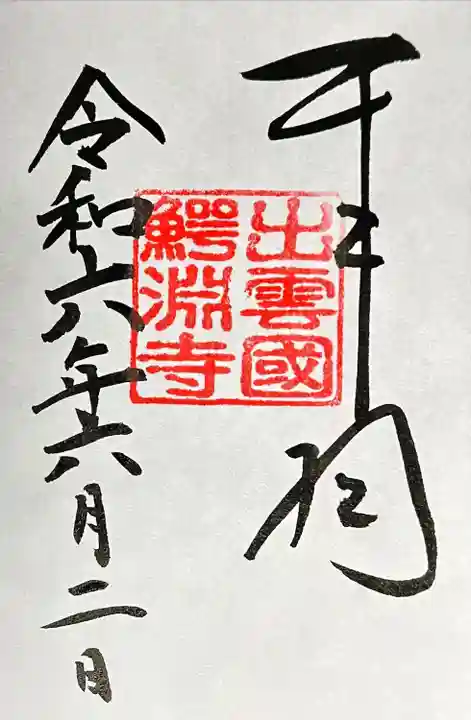 出雲國
鰐淵寺
令和六年六月二日